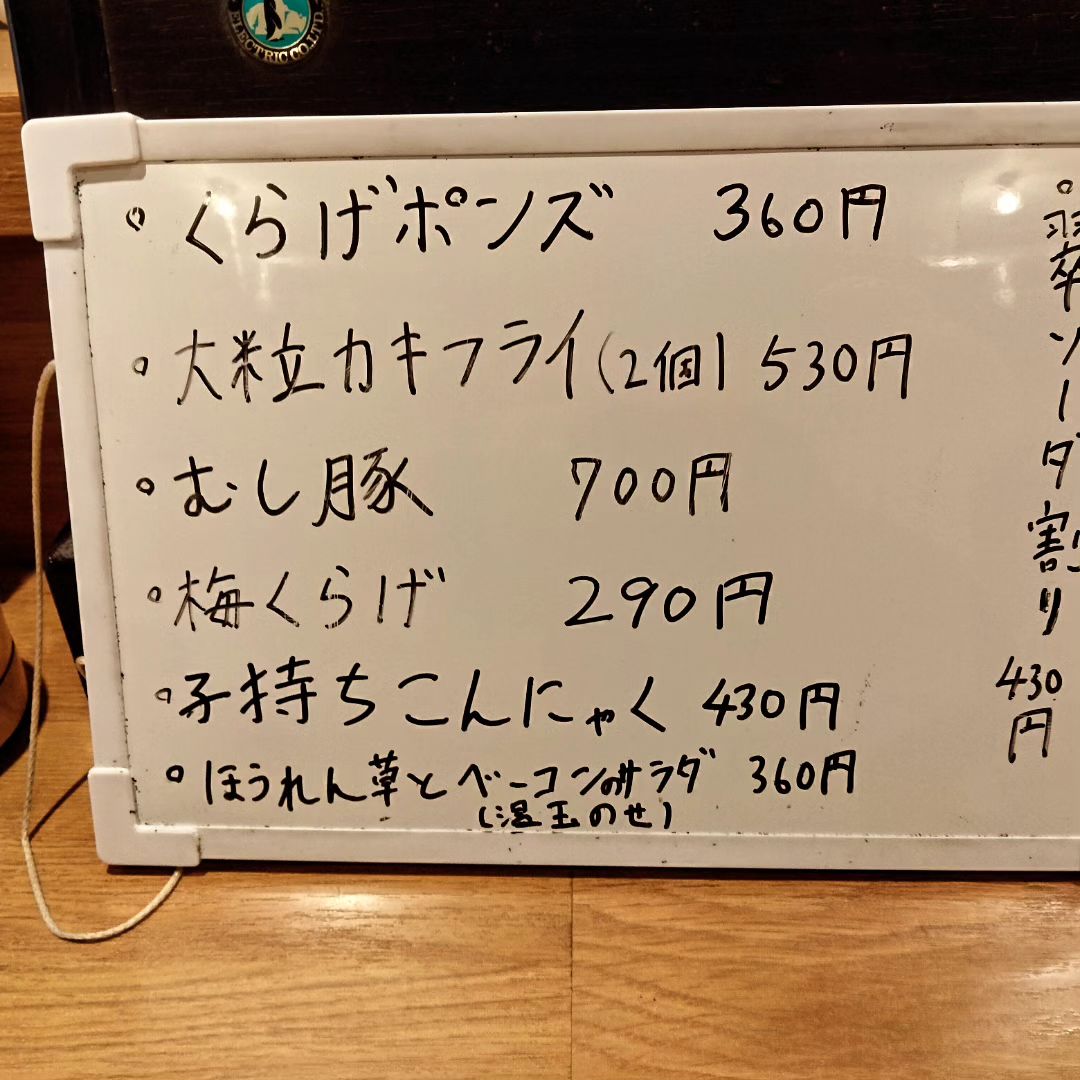 ELECTRIC CO.,LTD.
。くらげポンズ 360円
。大粒カキフライ(2個) 530円
。むし豚 700円
。梅くらげ 290円
。子持ちこんにゃく 430円
。ほうれん草とベーコンのサラダ 360円
(温玉のせ)
。翠ソーダ割り
430
円